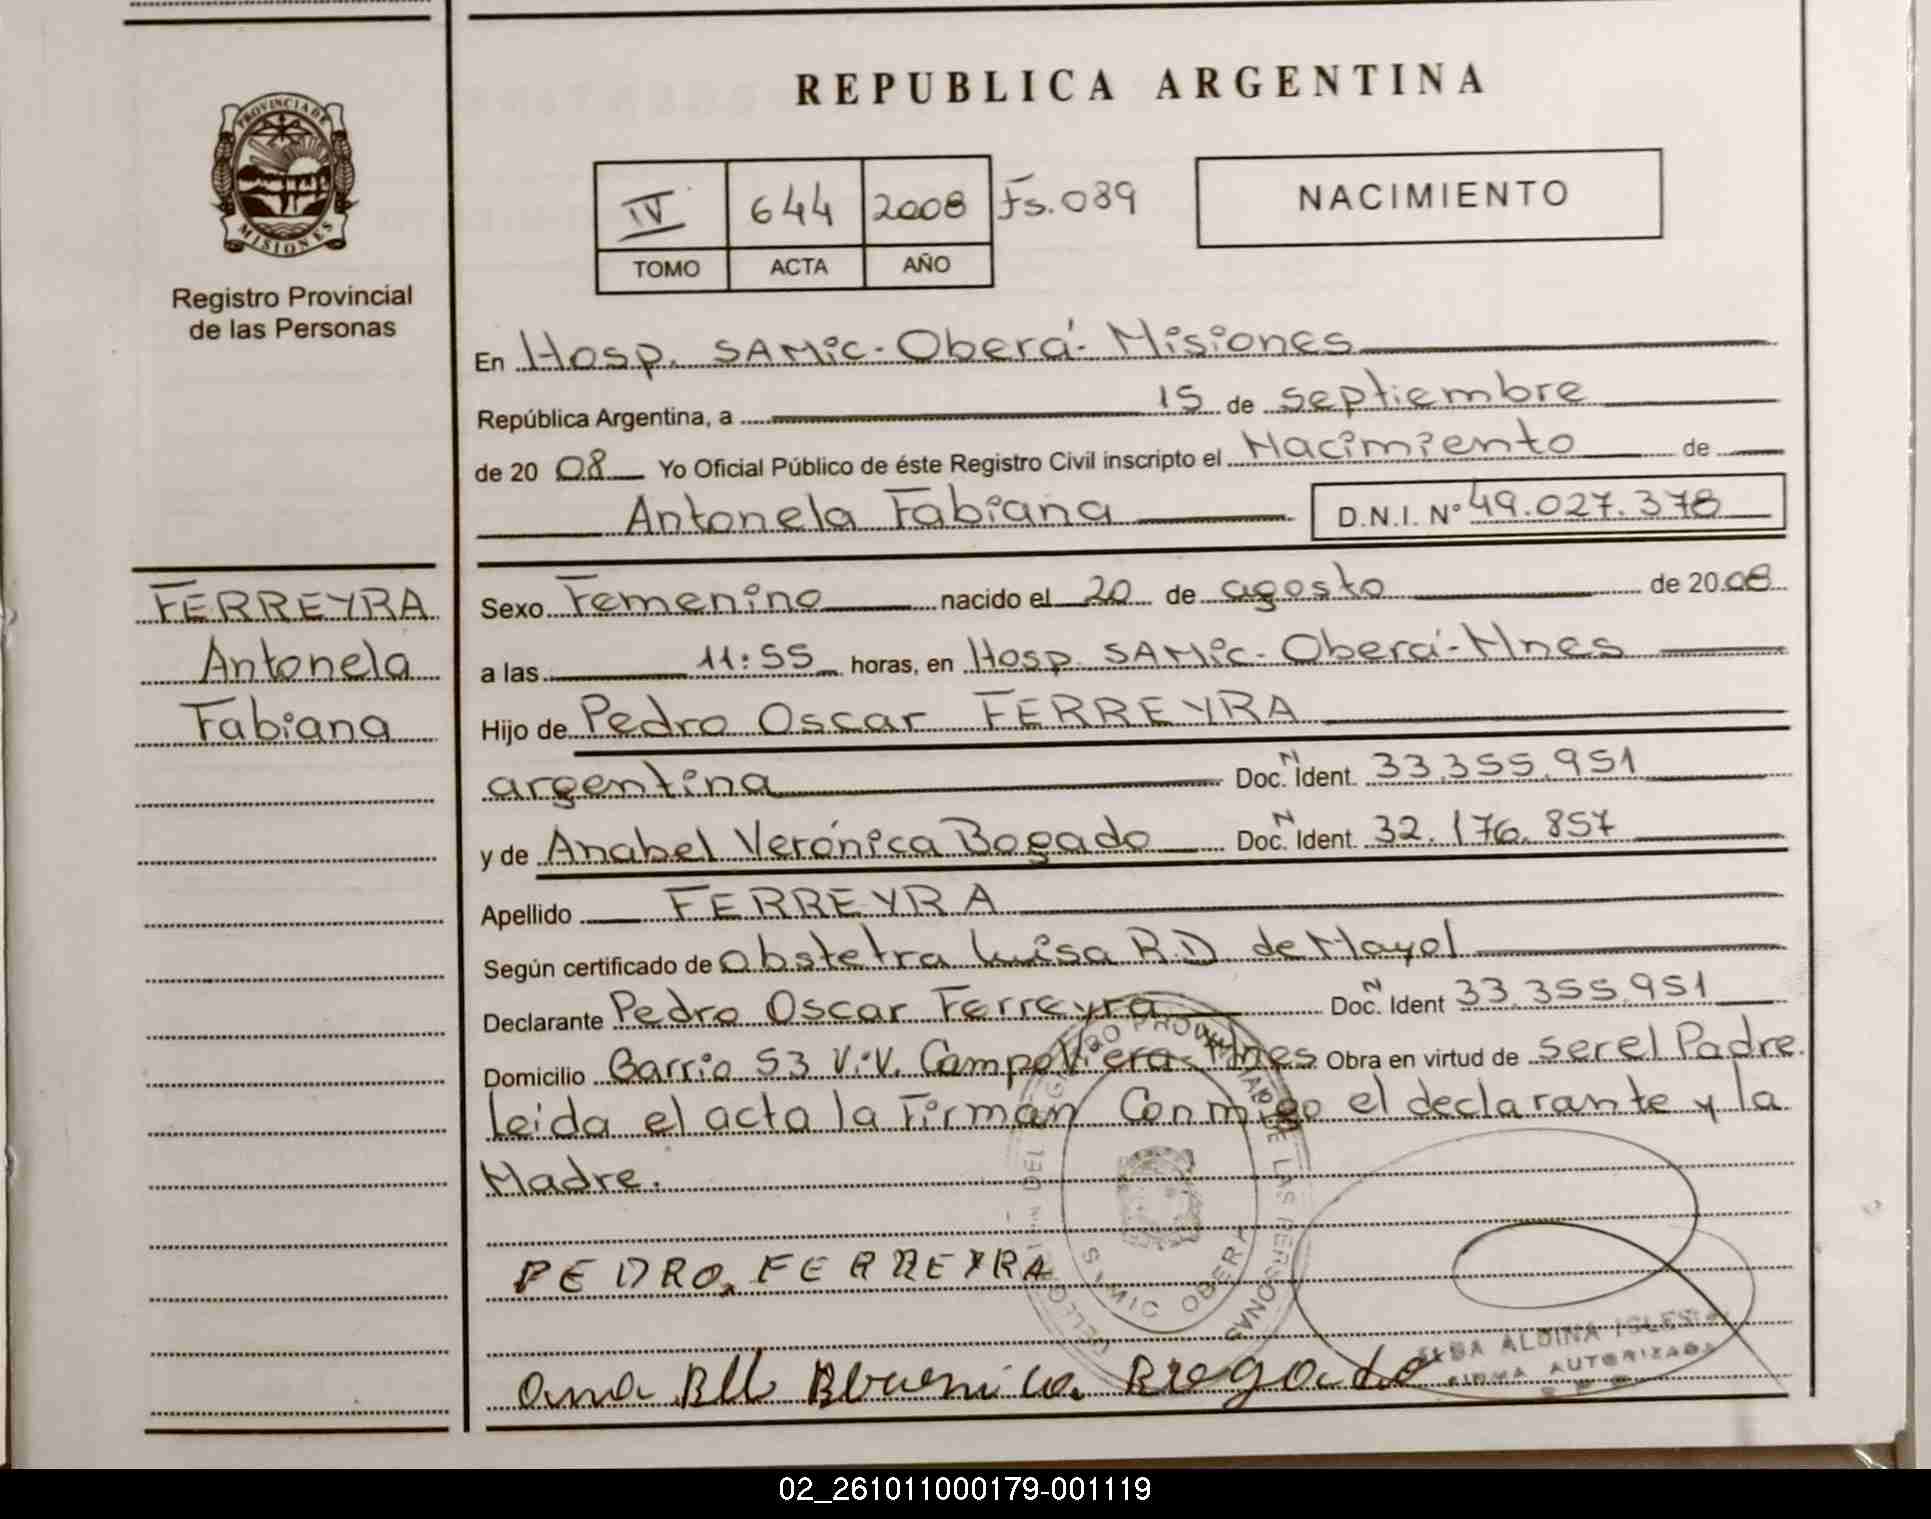 REPUBLICA ARGENTINA
PROVINCIA DE
MISIONES
Registro Provincial
de las Personas
IV 644 2008 Fs. 089
TOMO ACTA AÑO
NACIMIENTO
En Hosp. SAMIC - Oberá - Misiones
República Argentina, a 15 de septiembre
de 2008 Yo Oficial Público de éste Registro Civil inscripto el Nacimiento de
Antonela Fabiana D.N.I. Nº 49.027.378
FERREYRA
Antonela
Fabiana
Sexo Femenino nacido el 20 de agosto de 2008
a las 11:55 horas, en Hosp. SAMIC - Oberá - Mnes
Hijo de Pedro Oscar FERREYRA
argentina Doc. N Ident. 33.355.951
y de Anabel Verónica Bogado Doc. N Ident. 32.176.857
Apellido FERREYRA
Según certificado de obstetra Luisa R.D de Mayol
Declarante Pedro Oscar Ferreyra Doc. N Ident 33.355.951
Domicilio Barrio 53 Viv. Campo Viera - Mnes Obra en virtud de ser el Padre.
leida el acta la Firman Conmigo el declarante y la
Madre.
PEDRO, FERREYRA
REGISTRO PROVINCIAL DE LAS PERSONAS
SAMIC OBERA
ELBA ALDINA IGLESIAS
FIRMA AUTORIZADA
02_261011000179-001119